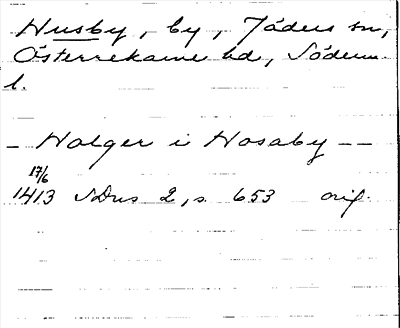 Husby, by, Jäders sn,
Österrekarne hd, Söderm.
l.
– Holger i Hosaby – –
17/6
1413 SDns 2, s. 653 orig.